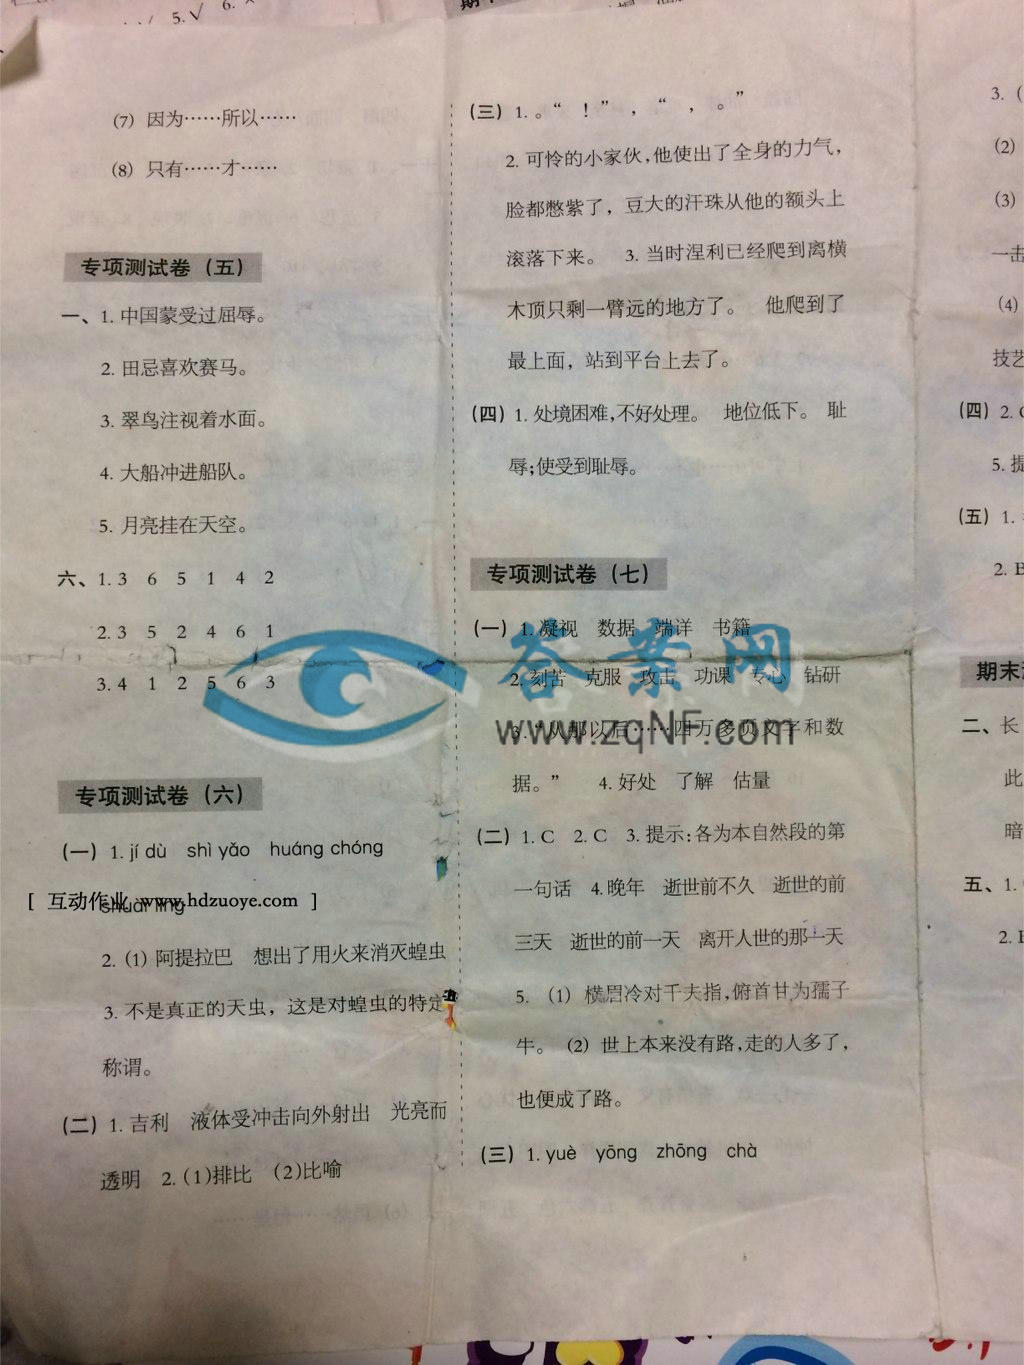 5. √ 6.
(7) 因为……所以……
(8) 只有……才……
专项测试卷（五）
一、1. 中国蒙受过屈辱。
2. 田忌喜欢赛马。
3. 翠鸟注视着水面。
4. 大船冲进船队。
5. 月亮挂在天空。
六、1. 3 6 5 1 4 2
2. 3 5 2 4 6 1
3. 4 1 2 5 6 3
专项测试卷（六）
(一) 1. jí dù shì yǎo huáng chóng
shuài lǐng
[ 互动作业 www.hdzuoye.com ]
2. (1) 阿提拉巴 想出了用火来消灭蝗虫
3. 不是真正的天虫，这是对蝗虫的特定
称谓。
(二) 1. 吉利 液体受冲击向外射出 光亮而
透明 2. (1)排比 (2)比喻
(三) 1. 。“ ！”，“ ， 。”
2. 可怜的小家伙,他使出了全身的力气，
脸都憋紫了，豆大的汗珠从他的额头上
滚落下来。 3. 当时涅利已经爬到离横
木顶只剩一臂远的地方了。 他爬到了
最上面，站到平台上去了。
(四) 1. 处境困难,不好处理。 地位低下。 耻
辱;使受到耻辱。
专项测试卷（七）
(一) 1. 凝视 数据 端详 书籍
2. 刻苦 克服 攻击 功课 专心 钻研
3. “从那以后……四万多页文字和数
据。” 4. 好处 了解 估量
答案网
www.zqNF.com
(二) 1. C 2. C 3. 提示:各为本自然段的第
一句话 4. 晚年 逝世前不久 逝世的前
三天 逝世的前一天 离开人世的那一天
5. (1) 横眉冷对千夫指,俯首甘为孺子
牛。 (2) 世上本来没有路,走的人多了，
也便成了路。
(三) 1. yuè yōng zhōng chà
3. (
(2)
(3)
一击
(4)
技艺
(四) 2.
5. 提
(五) 1.
2. B
期末
二、长
此
暗
五、1.
2.